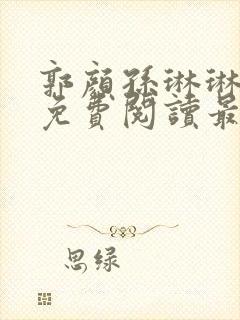 郭顏孫琳琳
免費閱讀最
思绿